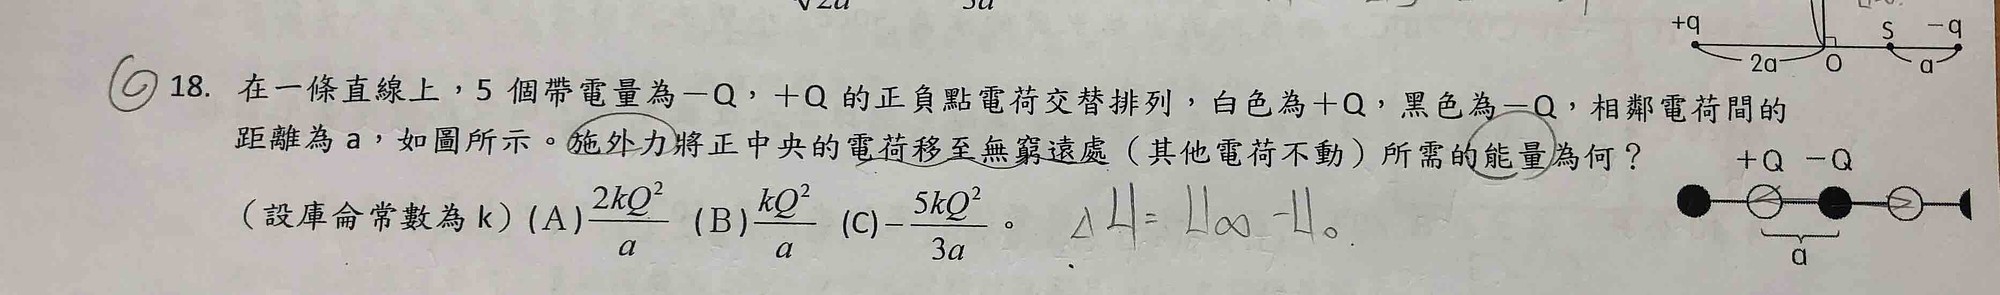 +q S −q
2a O a
⑥ 18. 在一條直線上，5 個帶電量為－Q，＋Q 的正負點電荷交替排列，白色為＋Q，黑色為－Q，相鄰電荷間的
距離為 a，如圖所示。施外力將正中央的電荷移至無窮遠處（其他電荷不動）所需的能量為何？
+Q −Q
（設庫侖常數為 k）(A) 2kQ²/a (B) kQ²/a (C) −5kQ²/3a 。 ΔU = U∞ − U₀.
a